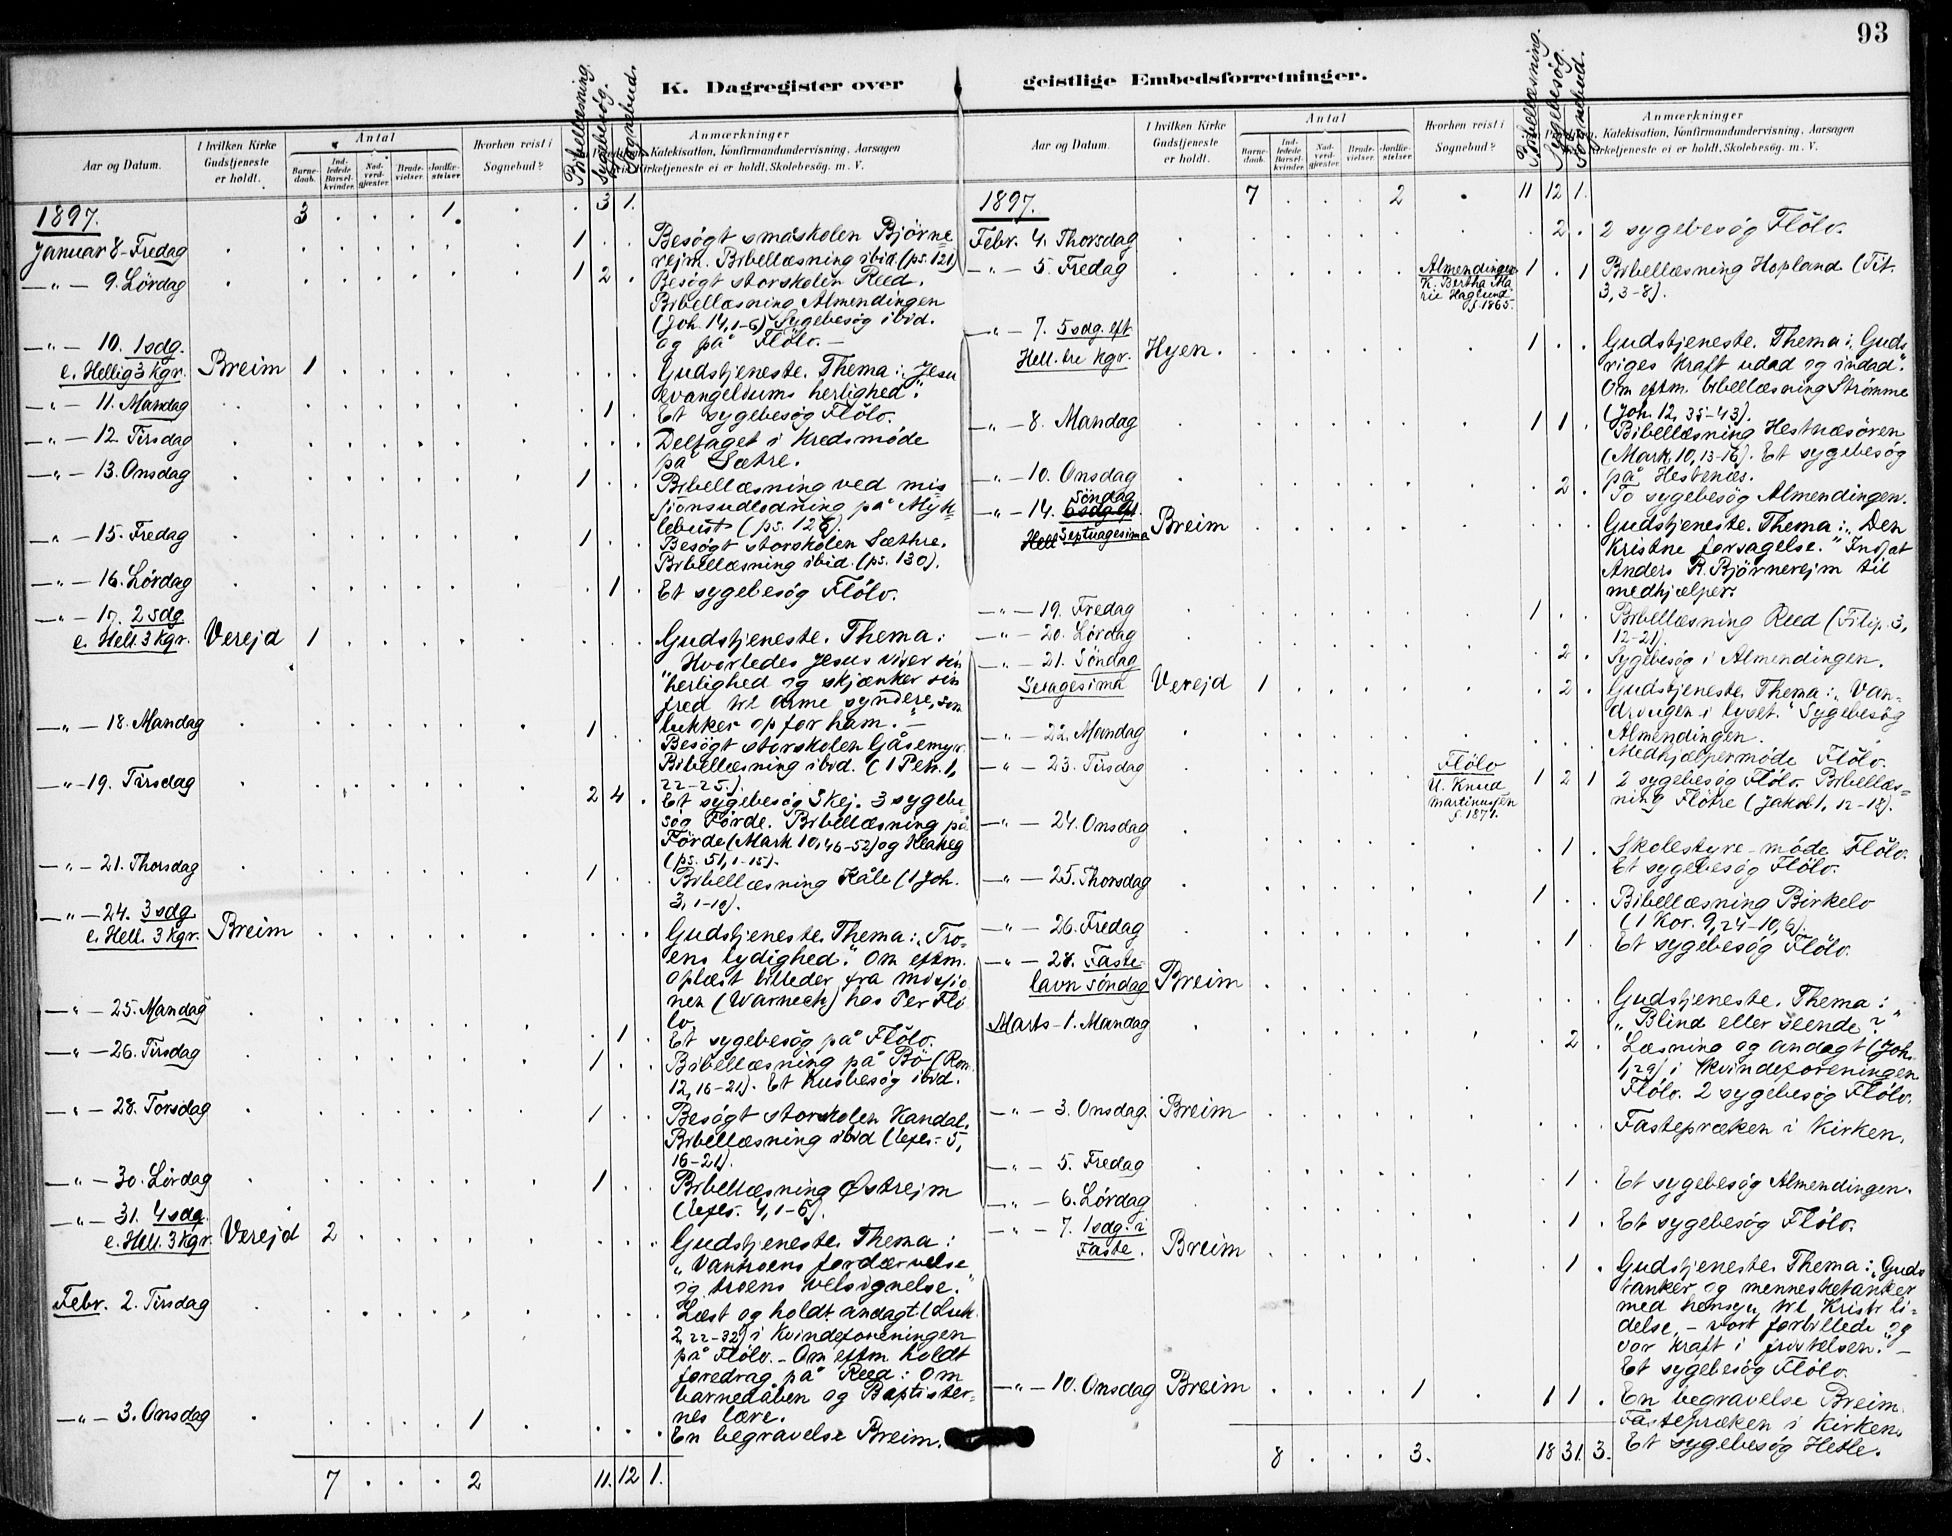 93
K. Dagregister over
geistlige Embedsforretninger.
Bibellæsning.
Sygebesøg.
Sognebud.
Aar og Datum.
I hvilken Kirke
Gudstjeneste
er holdt.
Antal
Barne-
daab.
Ind-
ledede
Barsel-
kvinder.
Nad-
verd-
gjæster.
Brude-
vielser.
Jordfæ-
stelser.
Hvorhen reist i
Sognebud?
Anmærkninger
Katekisation, Konfirmandundervisning, Aarsagen
Kirketjeneste ei er holdt. Skolebesøg. m. V.
1897. 3 . . . . 1. . . 3 1.
Januar 8. Fredag 1 . . Besøgt småskolen Bjørne
rejm. Bibellæsning ibid. (ps. 121)
—"— 9. Lørdag 1 2 . Besøgt storskolen Reed.
Bibellæsning Almendingen
(Joh. 14, 1-6) Sygebesøg ibid.
og på Flølo. —
—"— 10. 1 sdg.
e. Hellig 3 kgr. Breim 1 Gudstjeneste. Thema: „Jesu
evangeliums herlighed".
—"— 11. Mandag . 1 . Et sygebesøg Flølo.
—"— 12. Tirsdag Deltaget i Kredsmøde
på Sætre.
—"— 13. Onsdag 1 . . Bibellæsning ved mis
sjonsudlodning på Myk-
lebust (ps. 126).
—"— 15. Fredag 1 . . Besøgt storskolen Sæthre.
Bibellæsning ibid. (ps. 130).
—"— 16. Lørdag . 1 . Et sygebesøg Flølo.
—"— 17. 2 sdg
e. Hell. 3 kgr. Verejd 1 Gudstjeneste. Thema:
„Hvorledes Jesus viser sin
herlighed og skjænker sin
fred til arme syndere, som
lukker op for ham." —
—"— 18. Mandag 1 . . Besøgt storskolen Gåsemyr.
Bibellæsning ibid. (1 Petr. 1,
22-25.)
—"— 19. Tirsdag 2 4 . Et sygebesøg Skej. 3 sygebe-
søg Førde. Bibellæsning på
Førde (Mark 10, 46-52) og
(ps. 51, 1-15).
—"— 21. Thorsdag 1 . . Bibellæsning Kåle (1 Joh.
3, 1-10).
—"— 24. 3 sdg.
e. Hell. 3 kgr. Breim Gudstjeneste. Thema: „Tro-
ens lydighed". Om eftm.
oplæst billeder fra missjo
nen (Warneck) hos Per Flø
lo.
—"— 25. Mandag . 1 . Et sygebesøg på Flølo.
—"— 26. Tirsdag 1 . . Bibellæsning på Bø (Rom
12, 16-21). Et husbesøg ibid.
—"— 28. Torsdag 1 . . Besøgt storskolen Kandal.
Bibellæsning ibid (Efes. 5,
16-21).
—"— 30. Lørdag 1 . . Bibellæsning Østrejm
(Efes. 4, 1-6).
—"— 31. 4 sdg.
e. Hell. 3 kgr. Verejd 2 Gudstjeneste. Thema:
„Vantroens fordærvelse
og troens velsignelse."
Febr. 2. Tirsdag Læst og holdt andagt (Luk.
2, 22-32) i Kvindeforeningen
på Flølo. — Om eftm holdt
foredrag på Reed: Om
barnedåben og Baptister-
nes lære.
—"— 3. Onsdag 1 En begravelse Breim.
7 . . . 2 11. 12 1.
Aar og Datum.
I hvilken Kirke
Gudstjeneste
er holdt.
Antal
Barne-
daab.
Ind-
ledede
Barsel-
kvinder.
Nad-
verd-
gjæster.
Brude-
vielser.
Jordfæ-
stelser.
Hvorhen reist i
Sognebud?
Bibellæsning.
Sygebesøg.
Sognebud.
Anmærkninger
Katekisation, Konfirmandundervisning, Aarsagen
Kirketjeneste ei er holdt. Skolebesøg. m. V.
1897. 7 . . . 2 . 11 12 1.
Febr. 4. Thorsdag . 2 . 2 sygebesøg Flølo.
—"— 5. Fredag Almendingen 1 . 1 Bibellæsning Hopland (Tit.
K. Bertha Ma
rie Haglund
f. 1865. 3, 3-8).
—"— 7. 5 sdg. eft
Hell. tre kgr. Hyen. 1 . . Gudstjeneste. Thema: „Guds
riges kraft udad og indad".
Om eftm. bibellæsning Strømme
(Joh. 12, 35-43).
—"— 8. Mandag 1 1 . Bibellæsning Hestnæsøren
(Mark. 10, 13-16). Et sygebesøg
på Hestenæs.
—"— 10. Onsdag . 2 . To sygebesøg Almendingen.
—"— 14. Søndag
Septuagesima Breim Gudstjeneste. Thema: „Den
Kristne forsagelse." Indsat
Anders R. Bjørnerejm til
medhjælper.
—"— 19. Fredag 1 . . Bibellæsning Reed (Filip. 3,
12-21).
—"— 20. Lørdag . 2 . Sygebesøg i Almendingen.
—"— 21. Søndag
Sexagesima Verejd 1 . 2 . Gudstjeneste. Thema: „Van-
dringen i lyset." Sygebesøg
Almendingen.
—"— 22. Mandag Medhjælpermøde Flølo.
—"— 23. Tirsdag Flølo 1 2 1 2 sygebesøg Flølo. Bibellæs-
U. Knud
Martinussen
f. 1871. ning Fløtre (Jakob 1, 12-18).
—"— 24. Onsdag . 1 . Skolestyre-møde Flølo.
Et sygebesøg Flølo.
—"— 25. Thorsdag 1 . . Bibellæsning Birkelo
(1 Kor. 9, 24-10, 6).
—"— 26. Fredag . 1 . Et sygebesøg Flølo.
—"— 28. Faste-
lavn søndag Breim Gudstjeneste. Thema:
„Blind eller seende?"
Marts 1. Mandag . 2 . Læsning og andagt (Joh.
1, 29) i kvindeforeningen
Flølo. 2 sygebesøg Flølo.
—"— 3. Onsdag. Breim Fastepræken i Kirken.
—"— 5. Fredag . 1 . Et sygebesøg Almendingen.
—"— 6. Lørdag . 1 . Et sygebesøg Flølo.
—"— 7. 1 sdg. i
Faste. Breim . 1 . Gudstjeneste. Thema: „Guds
tanker og mennesketanker
med hensyn til Kristi li-
delse, — vort forbillede og
vor kraft i fristelsen. —
Et sygebesøg Flølo.
—"— 10. Onsdag Breim 1 1 1 . En begravelse Breim.
Fastepræken i Kirken.
Et sygebesøg Hetle.
8 . . . 3. 18 31. 3.